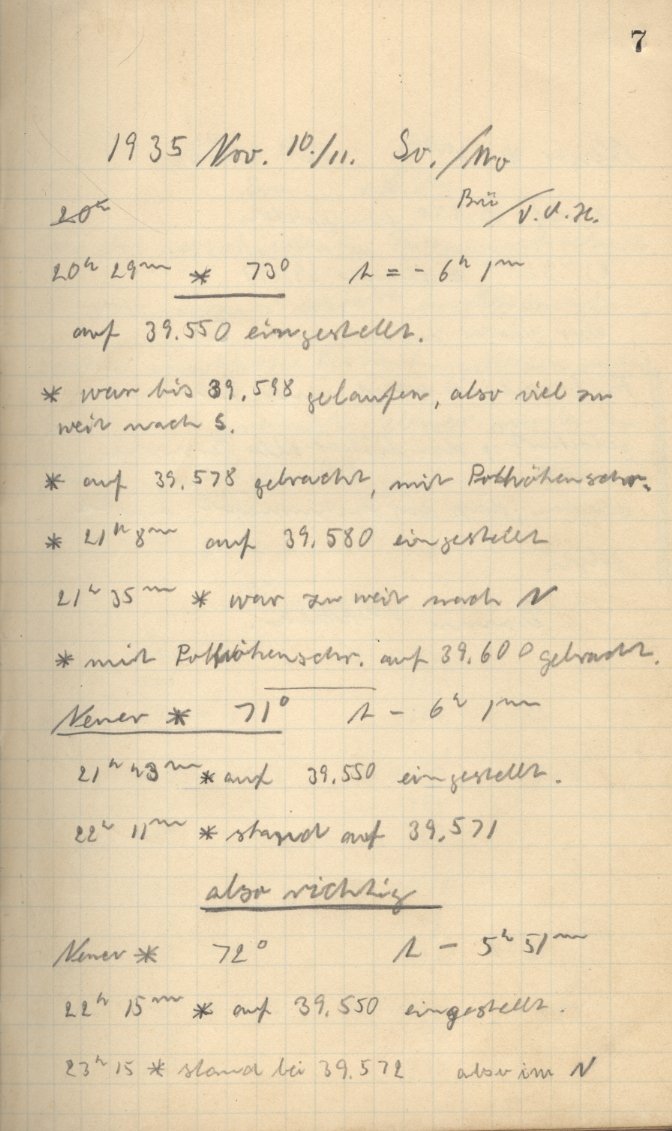 7
1935 Nov. 10./11. So./Mo
Brü/v.d.H.
20h
20h 29m * 73° t = - 6h 1m
auf 39.550 eingestellt.
* war bis 39.598 gelaufen, also viel zu
weit nach S.
* auf 39.578 gebracht, mit Polhöhenschr.
* 21h 8m auf 39.580 eingestellt
21h 35m * war zu weit nach N
* mit Polhöhenschr. auf 39.600 gebracht.
Neuer * 71° t - 6h 1m
21h 43m * auf 39.550 eingestellt.
22h 11m * stand auf 39.571
also richtig
Neuer * 72° t - 5h 51m
22h 15m * auf 39.550 eingestellt.
23h 15 * stand bei 39.572 also im N